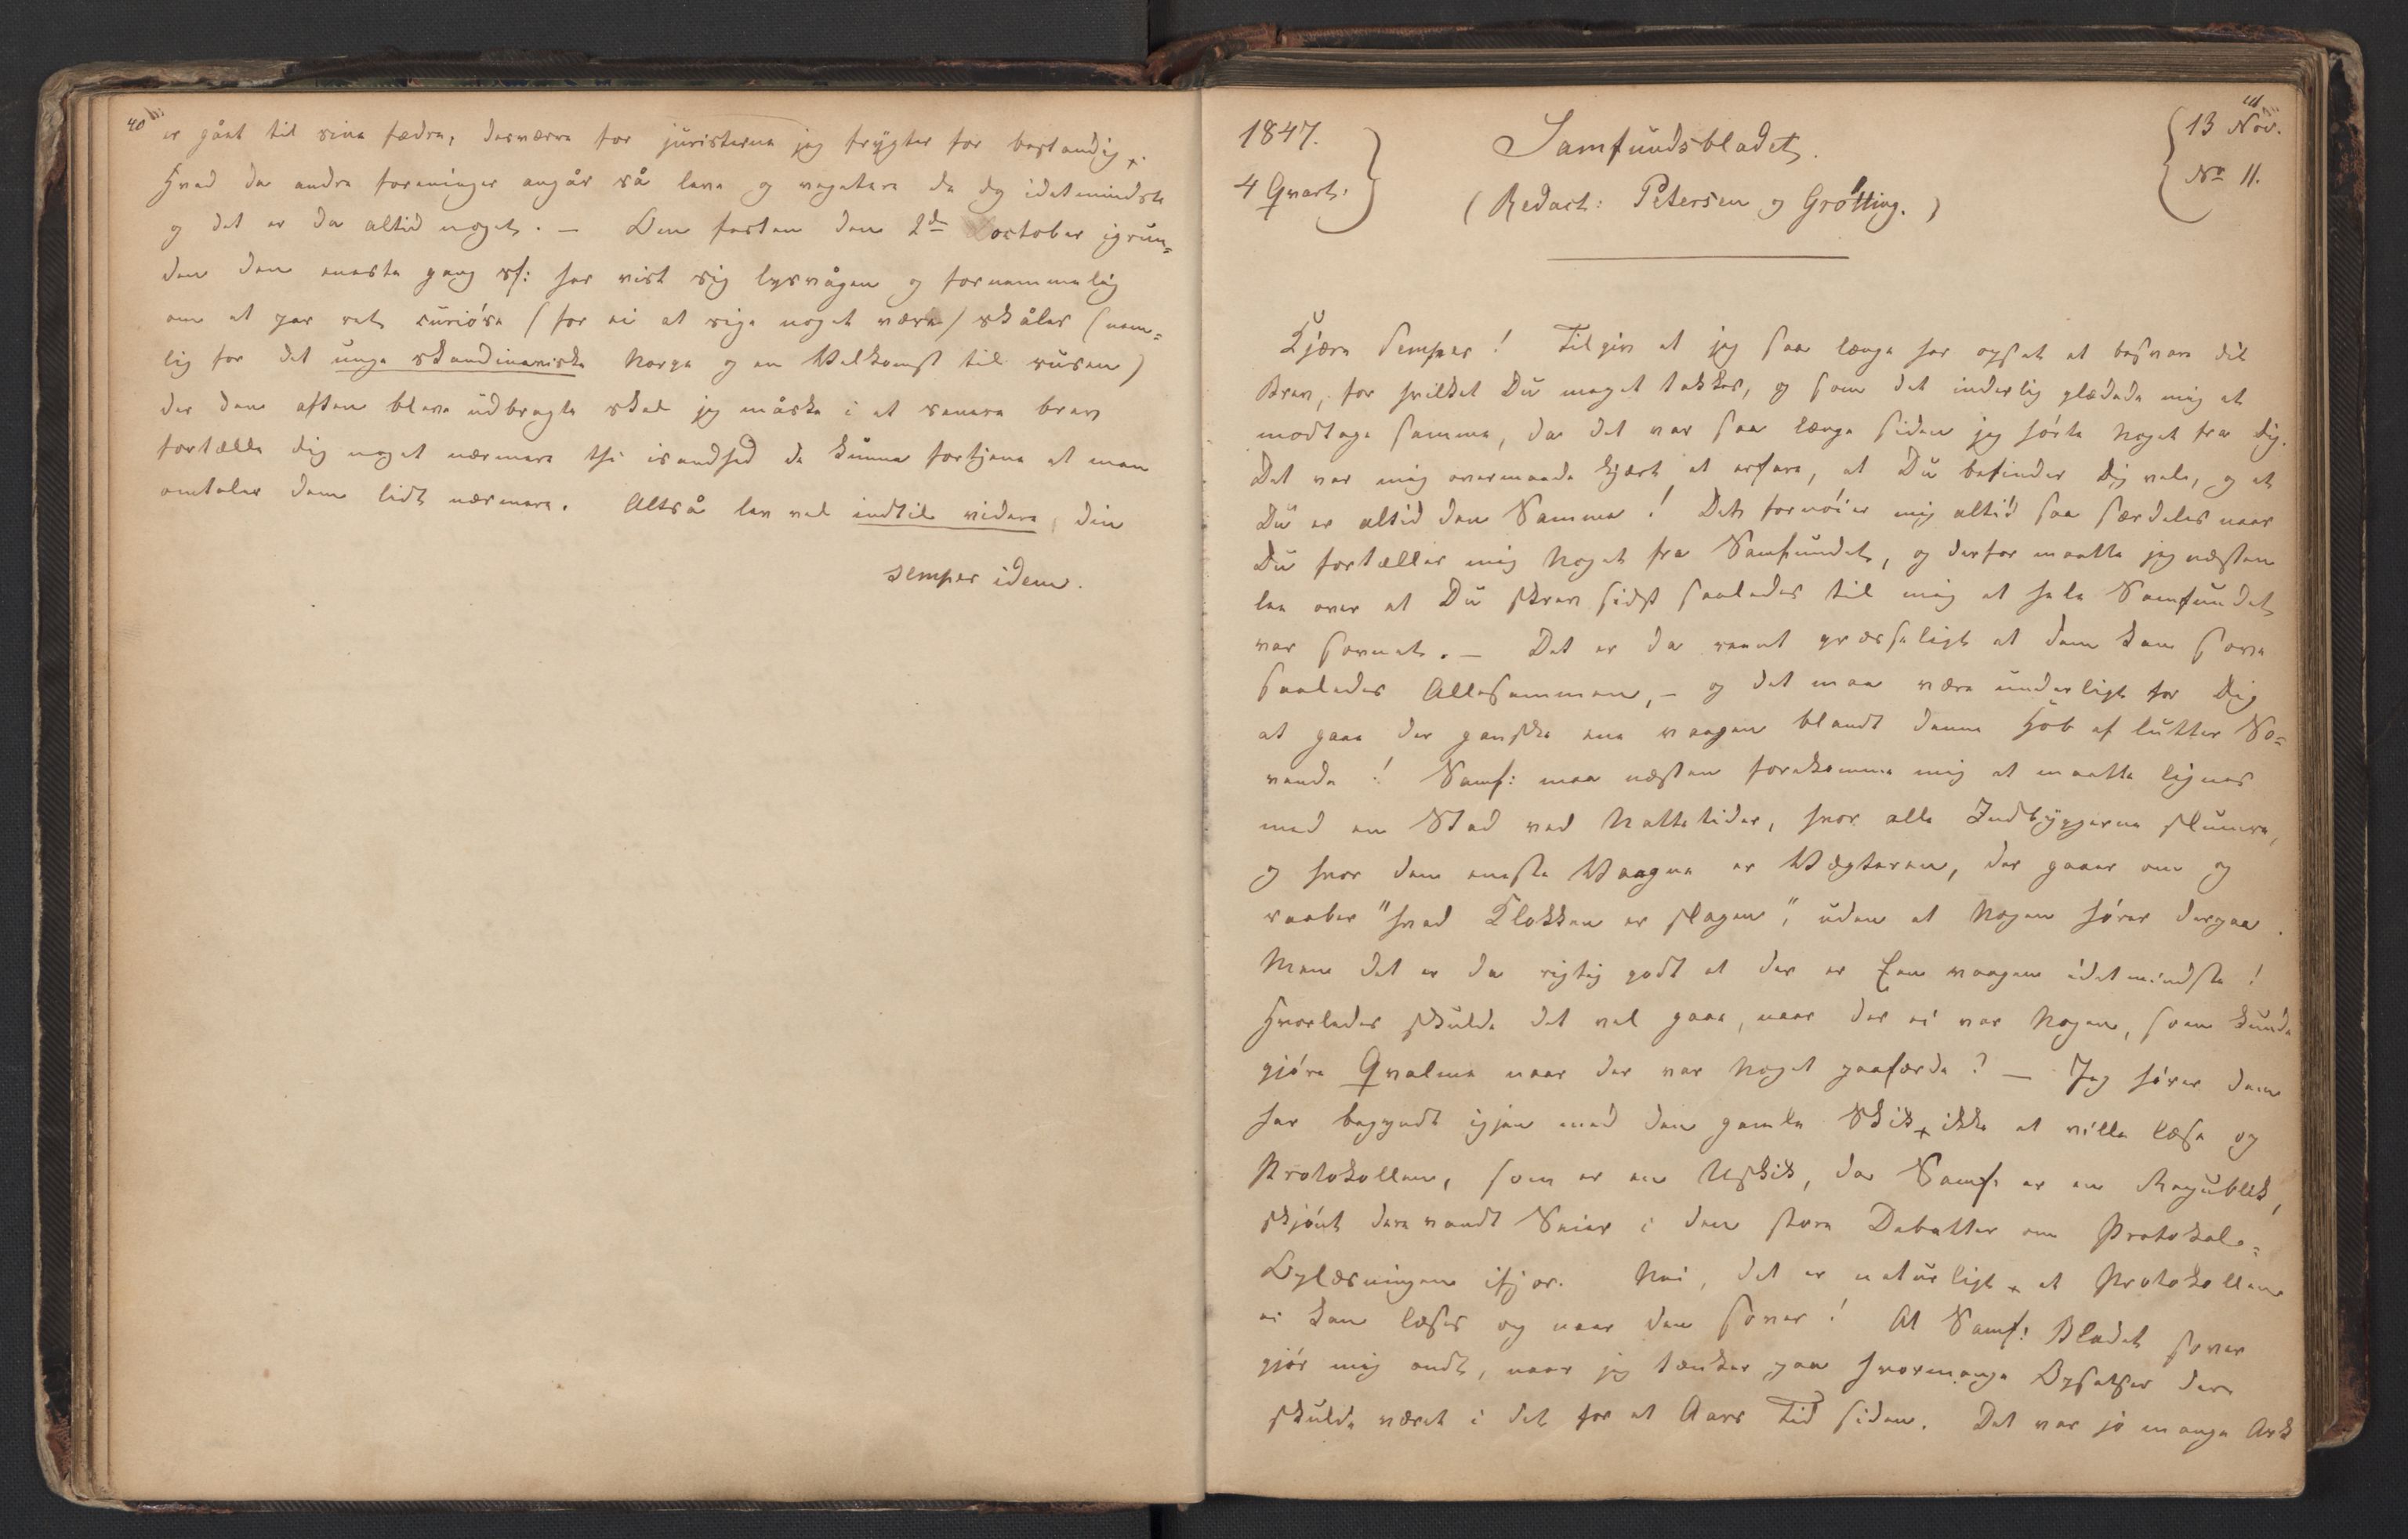 40
er gået til sine fædre, desværre for juristerne jeg frygter for bestandig.
Hvad de andre foreninger angår så leve og vegetere de dg idetmindste
og det er da altid noget. — Den festen den 2d october igrun=
den den eneste gang sf: har vist sig lysvågen og fornemmelig
om et par ret curióse (for ei at sige noget værre) skåler (nem=
lig for det unge skandinaviske Norge og en Velkomst til rusen)
der den aften bleve udbragte skal jeg måske i et senere brev
fortælle dig noget nærmere thi isandhed de kunne fortjene at man
omtaler dem lidt nærmere. Altså lev vel indtil videre, din
semper idem.
41
1847.
4 Qvart:
Samfundsbladet.
(Redact: Petersen og Grøtting.)
13 Nov.
No 11.
Kjære Semper! Tilgiv at jeg saa længe har opsat at besvare dit
Brev, for hvilket Du meget takkes, og som det inderlig glædede mig at
modtage samme, da det var saa længe siden jeg hórte Noget fra Dig.
Det var mig overmaade kjært at erfare, at Du befinder Dig vel, og at
Du er altid den Samme! Det fornóier mig altid saa særdeles naar
Du fortæller mig Noget fra Samfundet, og derfor maatte jeg næsten
lee over at Du skrev sidst saaledes til mig at hele Samfundet
var sovnet. — Det er da reent græsseligt at dem kan sove
saaledes Allesammen, — og det maa være underligt for Dig
at gaae der ganske ene vaagen blandt denne Hob af lutter So=
vende! Samf: maa næsten forekomme mig at maatte lignes
med en Stad ved Nattetider, hvor alle Indbyggerne slumre,
og hvor den eneste Vaagne er Vægteren, der gaaer om og
raaber "hvad Klokken er slagen", uden at Nogen hórer derpaa.
Men det er da rigtig godt at der er Een vaagen idetmindste!
Hvorledes skulde det vel gaae, naar der ei var Nogen, som kunde
gjóre Qvalme naar der var Noget paafærde? — Jeg hórer dem
har begyndt igjen med den gamle Skik, ikke at ville læse op
Protokollen, som er en Uskik, da Samf: er en Republik,
skjónt den vandt Seier i den store Debatter om Protokol=
Oplæsningen ifjor. Nei, det er naturligt, at Protokollen
ei kan læses op naar den sover! At Samf: Bladet sover
gjór mig ondt, naar jeg tænker paa hvormange Opsatser der
skulde været i det for et Aars Tid siden. Det var jo mange Ark